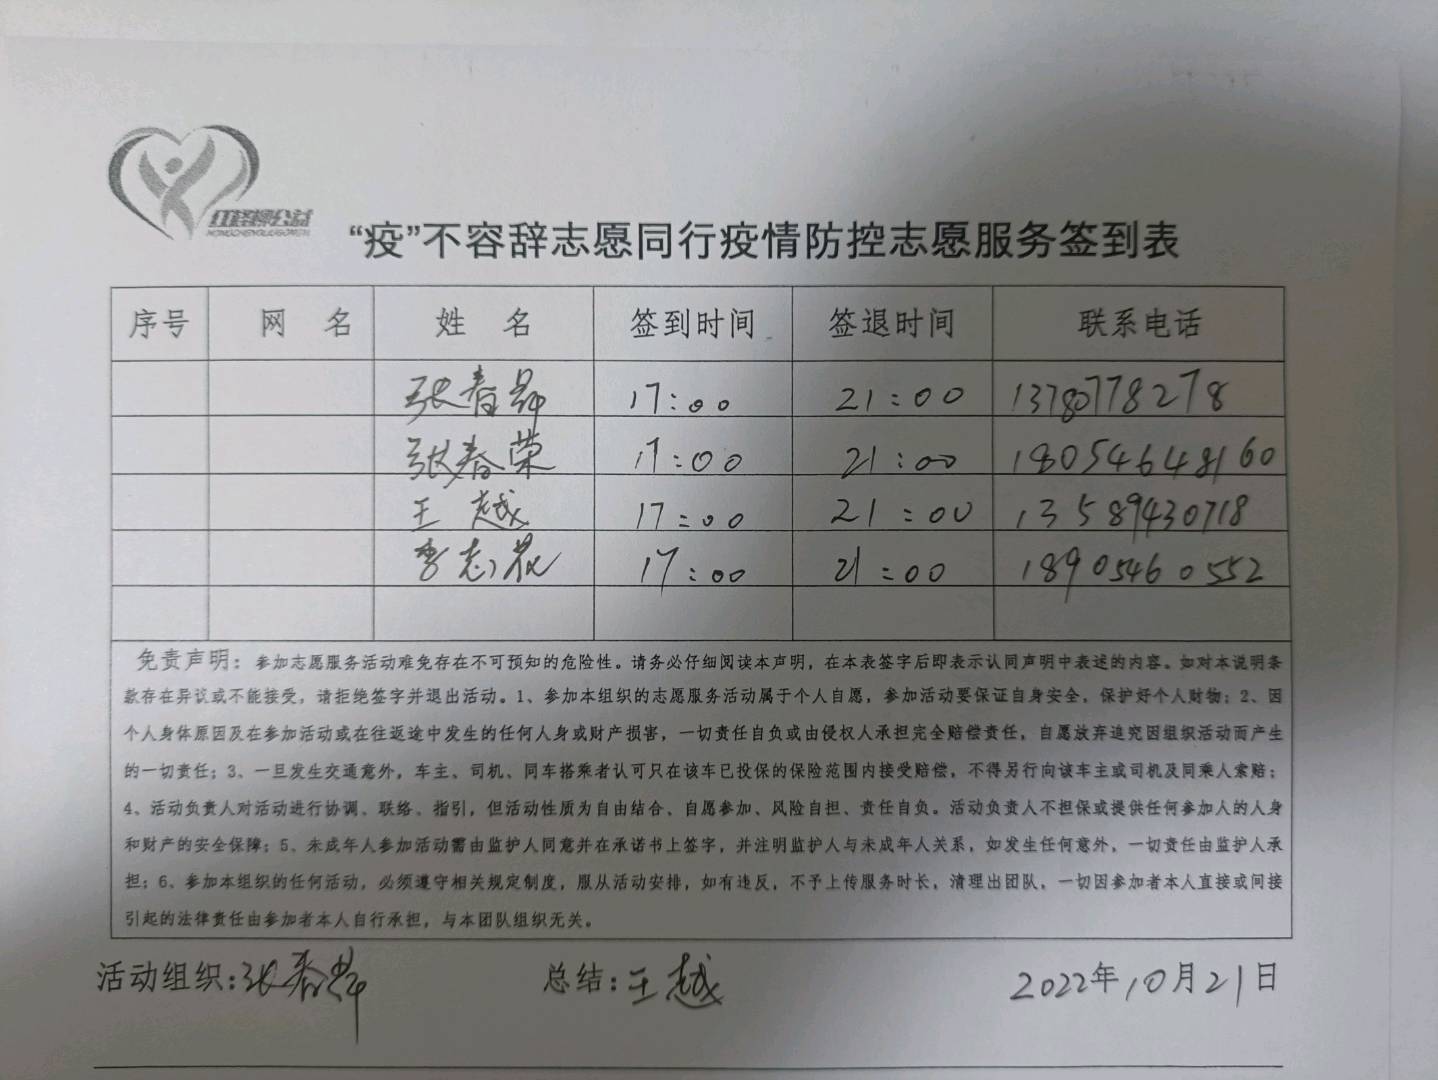 红柽柳公益
HONGCHENGLIUGONGYI
“疫”不容辞志愿同行疫情防控志愿服务签到表
序号 网 名 姓 名 签到时间 签退时间 联系电话
张春昇 17:00 21:00 13780778278
张春荣 17:00 21:00 18054648160
王 越 17:00 21:00 13589430718
李志花 17:00 21:00 18905460552
免责声明：参加志愿服务活动难免存在不可预知的危险性。请务必仔细阅读本声明，在本表签字后即表示认同声明中表述的内容。如对本说明条
款存在异议或不能接受，请拒绝签字并退出活动。1、参加本组织的志愿服务活动属于个人自愿，参加活动要保证自身安全，保护好个人财物；2、因
个人身体原因及在参加活动或在往返途中发生的任何人身或财产损害，一切责任自负或由侵权人承担完全赔偿责任，自愿放弃追究因组织活动而产生
的一切责任；3、一旦发生交通意外，车主、司机、同车搭乘者认可只在该车已投保的保险范围内接受赔偿，不得另行向该车主或司机及同乘人索赔；
4、活动负责人对活动进行协调、联络、指引，但活动性质为自由结合、自愿参加、风险自担、责任自负。活动负责人不担保或提供任何参加人的人身
和财产的安全保障；5、未成年人参加活动需由监护人同意并在承诺书上签字，并注明监护人与未成年人关系，如发生任何意外，一切责任由监护人承
担；6、参加本组织的任何活动，必须遵守相关规定制度，服从活动安排，如有违反，不予上传服务时长，清理出团队，一切因参加者本人直接或间接
引起的法律责任由参加者本人自行承担，与本团队组织无关。
活动组织：张春昇 总结：王越 2022年10月21日